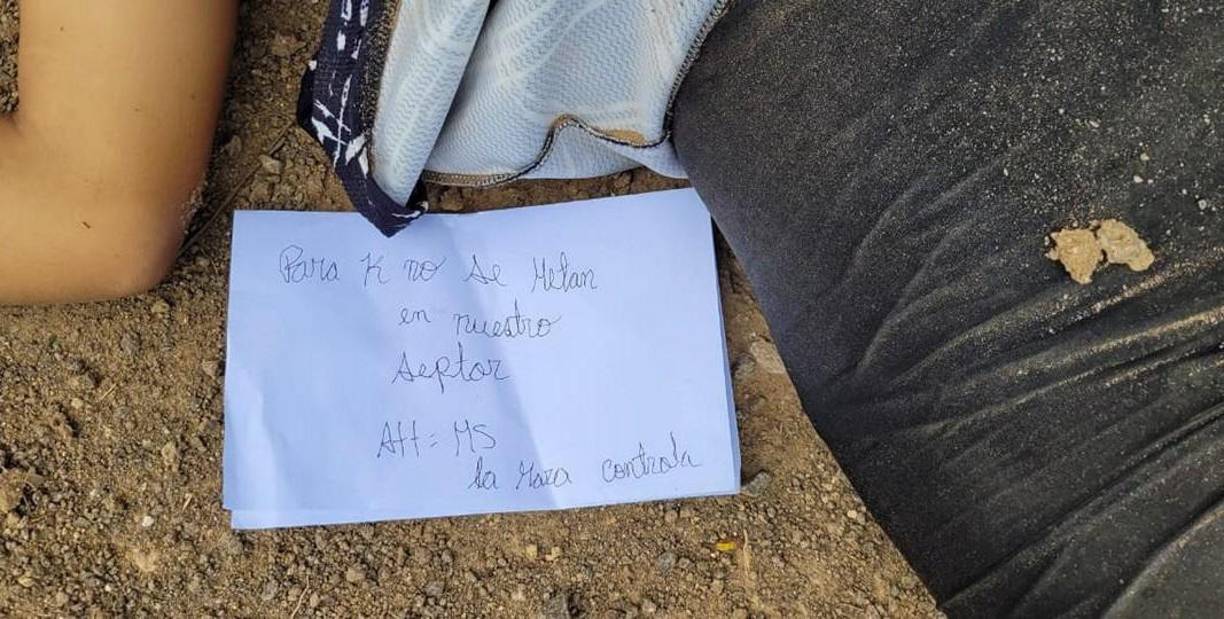 Para K no se Metan
en nuestro
septor
Att = MS
la Mara controla